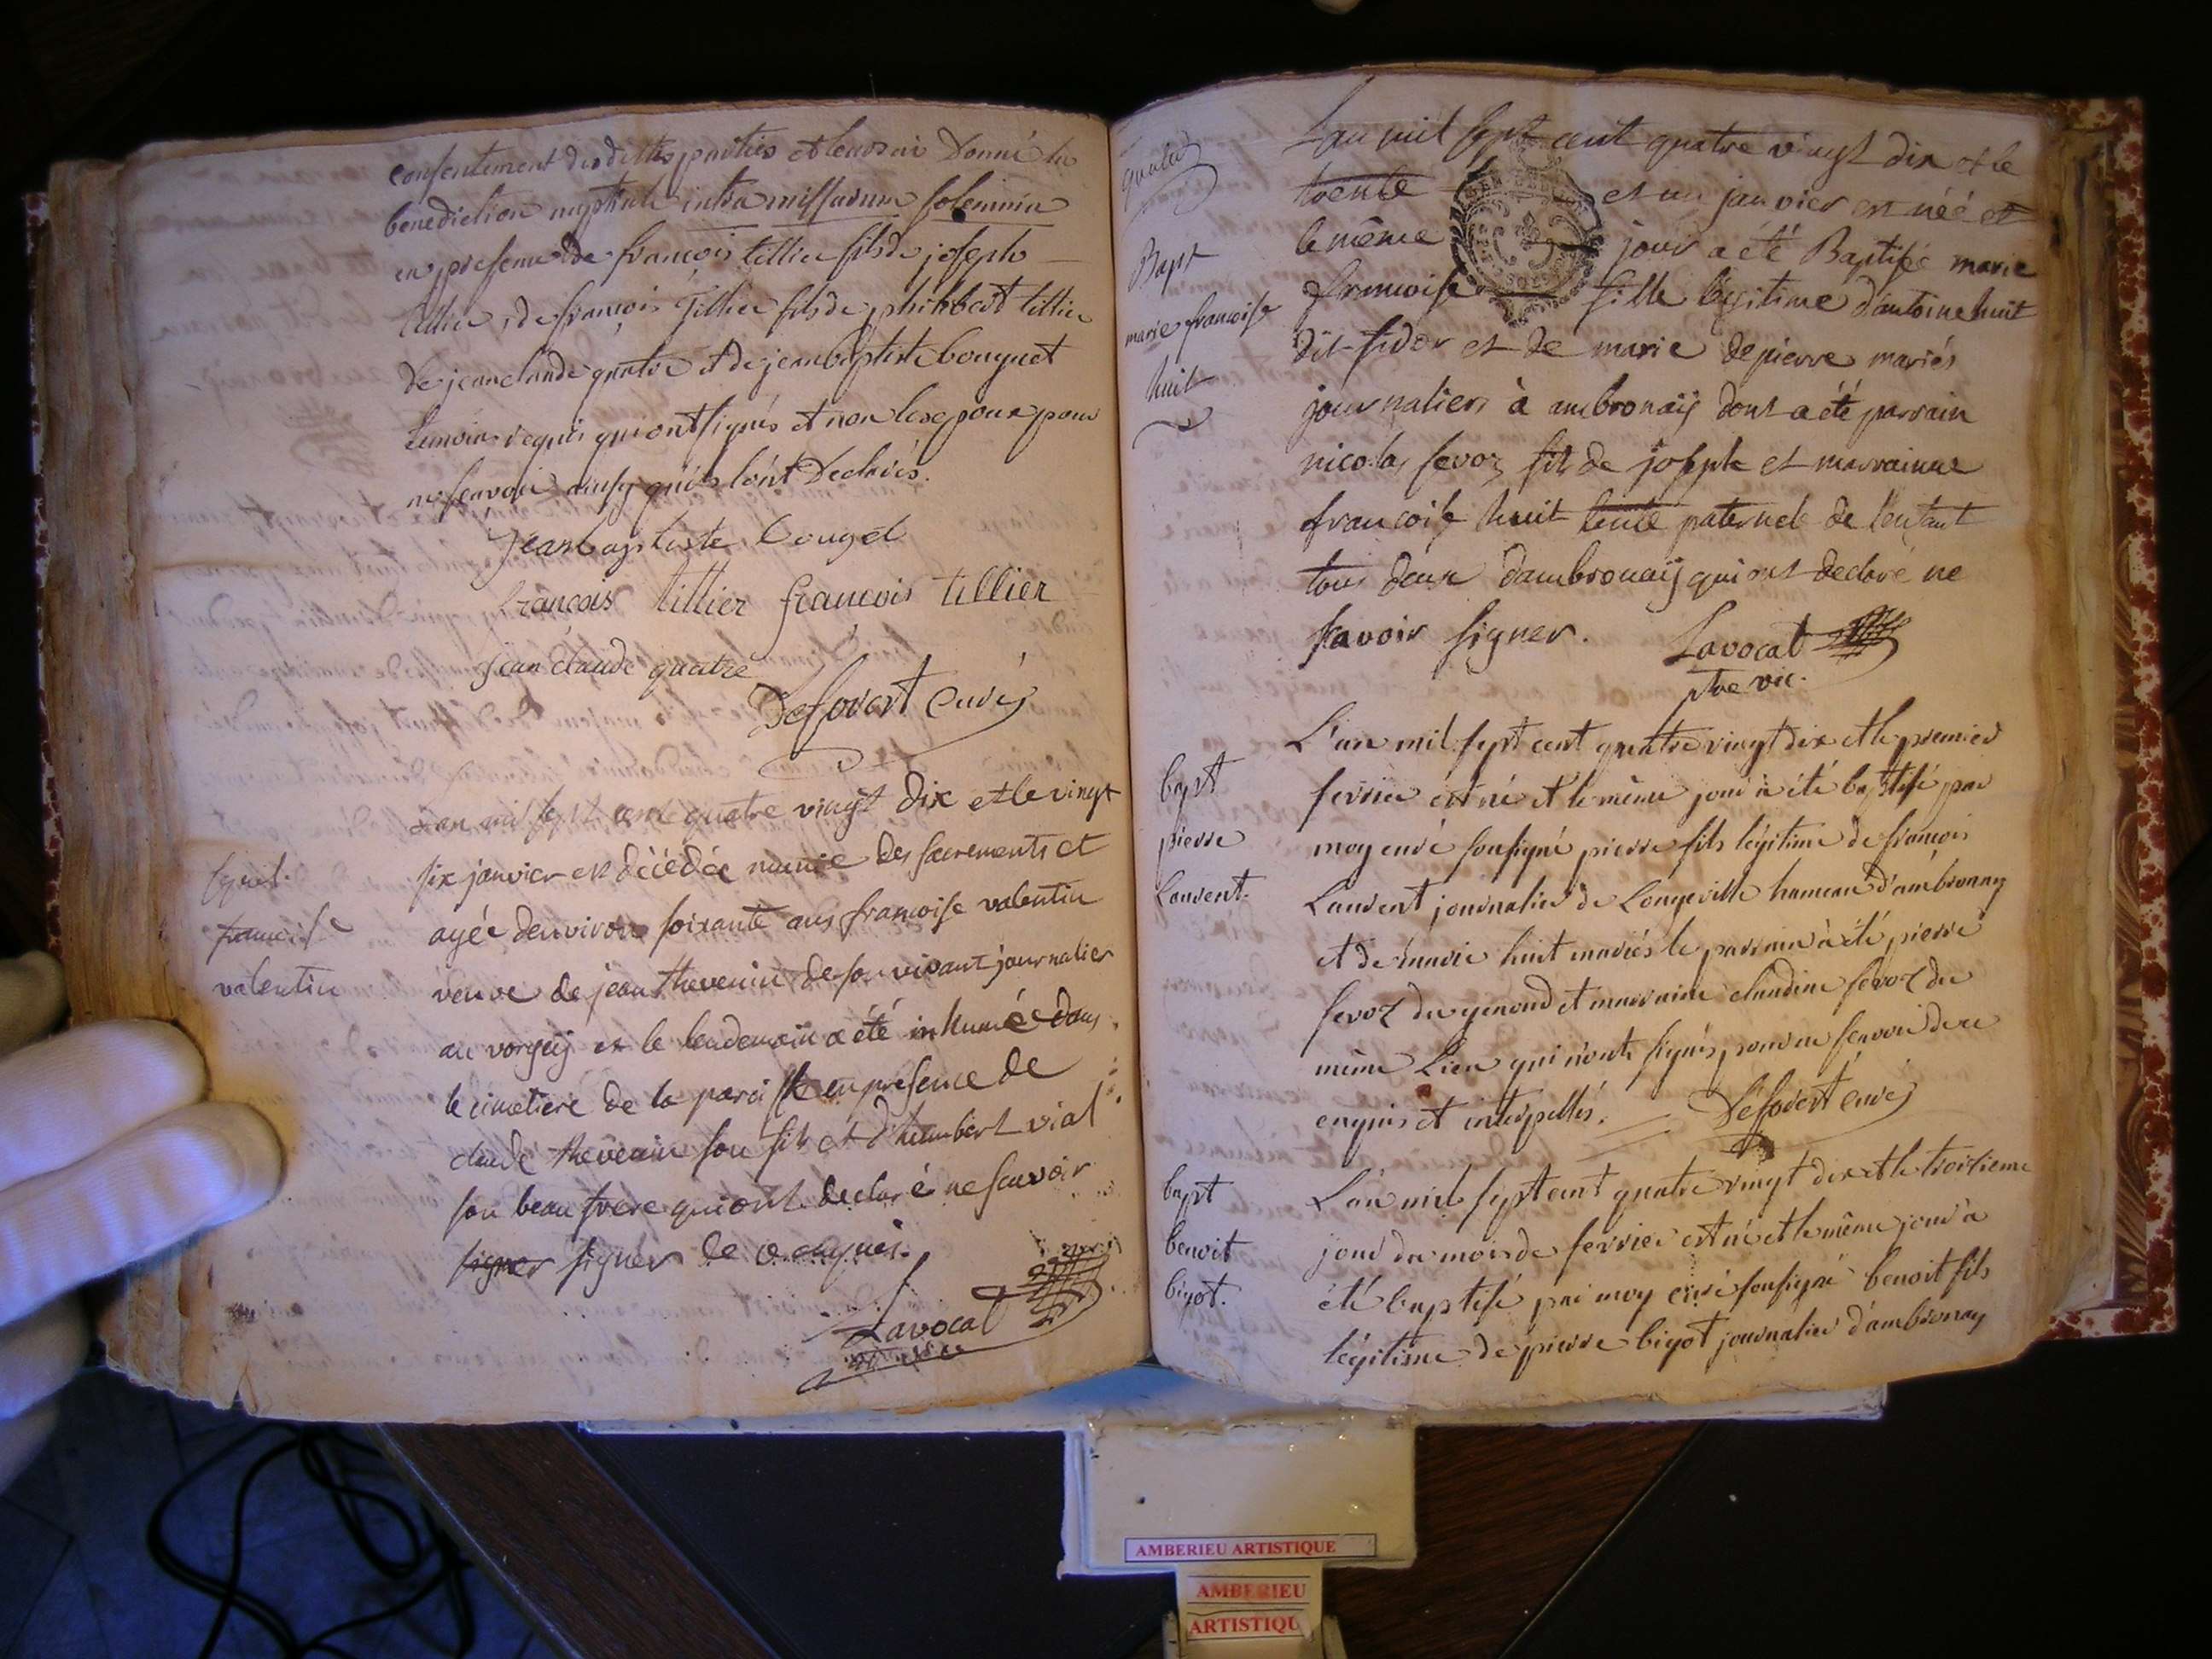 consentement des dittes parties et leurs ai donné la
benediction nuptiale intra missarum solemnia
en presence de françois tillier fils de joseph
tillier, de françois Tillier fils de philibbert tillier
de jean claude quatre et de jean baptiste bouguet
temoins requis qui ont signés et non les epoux pour
ne scavoir ainsy qu'ils l'ont declarés.
jean baptiste bouget
françois tillier françois tillier
jean claude quatre
Desovert curé
Sepult.
françoise
valentin
L'an mil sept cent quatre vingt dix et le vingt
six janvier est décédée munie des sacrements et
agée denviron soixante ans françoise valentin
veuve de jean thevenin de son vivant journalier
au vorgey et le lendemain a été inhumée dans
le cimetiere de la paroisse en presence de
claude thevenin son fils et d'humbert vial
son beau frere qui ont declaré ne scavoir
signer signer de ce enquis.
Lavocat
quatre
Bapt
marie françoise
huit
L'an mil sept cent quatre vingt dix et le
trente et un janvier est néé et
le même jour a été Baptisé marie
françoise fille légitime d'antoine huit
dit fidor et de marie depierre mariés
journaliers à ambronaÿ dont a été parrain
nicolas fevoz fils de joseph et marrainne
françoise huit tente paternele de l'enfant
tous deux d'ambronaÿ qui ont declaré ne
savoir signer. Lavocat
ptre vic.
bapt
pierre
Laurent.
L'an mil sept cent quatre vingt dix et le premier
fevrier est né et le même jour a été baptisé par
moy curé soussigné pierre fils légitime de françois
Laurent journalier de Longeville hameau d'ambronay
et de marie huit mariés le parrain a été pierre
fevoz du genoud et marraine claudine fevoz du
même Lieu qui n'ont signés pour ne scavoir de ce
enquis et interpellés. Desovert curé
bapt
benoit
bigot.
L'an mil sept cent quatre vingt dix et le troisieme
jour du mois de fevrier est né et le même jour a
été baptisé par moy curé soussigné benoit fils
légitime de pierre bigot journalier d'ambronay
AMBERIEU ARTISTIQUE
AMBERIEU
ARTISTIQU